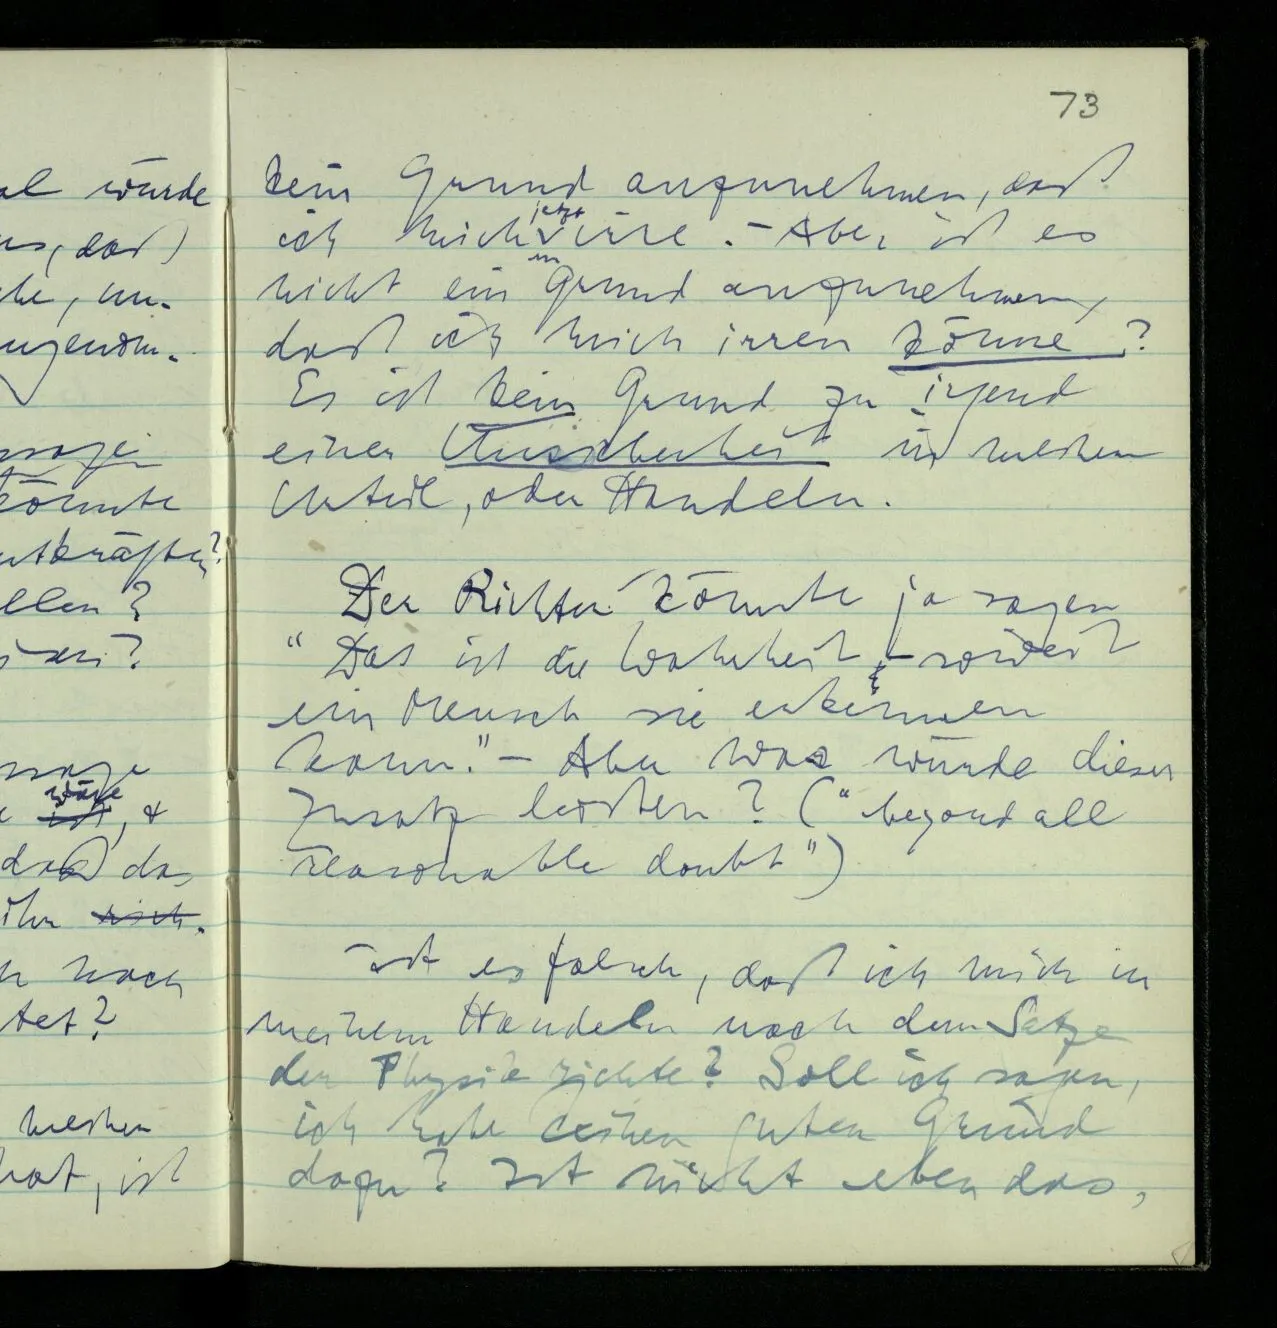 73
al würde
us, daß
che, un-
ungenom-
könnte
entkräften?
ellen?
wäre
ist, &
daß das
ihn
h noch
tet?
meinen
hat, ist
kein Grund anzunehmen, daß
ich mich jetzt irre. – Aber ist es
nicht ein Grund anzunehmen,
daß ich mich irren könne?
Es ist kein Grund zu irgend
einer Unsicherheit in meinem
Urteil, oder Handeln.
Der Richter könnte ja sagen
"Das ist die Wahrheit – soweit
ein Mensch sie erkennen
kann." – Aber was würde dieser
Zusatz leisten? ("beyond all
reasonable doubt")
Ist es falsch, daß ich mich in
meinem Handeln nach dem Satze
der Physik richte? Soll ich sagen,
ich habe keinen guten Grund
dazu? Ist nicht eben das,